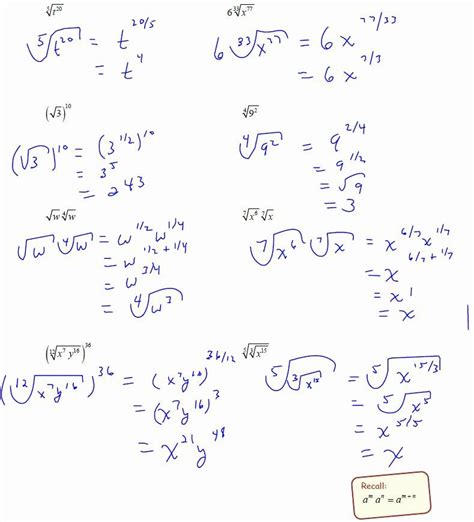 ⁵√t²⁰
⁵√t²⁰ = t^20/5
= t⁴
6 ³³√x⁷⁷
6 ³³√x⁷⁷ = 6x^77/33
= 6x^7/3
(√3)¹⁰
(√3)¹⁰ = (3^1/2)¹⁰
= 3⁵
= 243
⁴√9²
⁴√9² = 9^2/4
= 9^1/2
= √9
= 3
√w ⁴√w
√w ⁴√w = w^1/2 w^1/4
= w^1/2 + 1/4
= w^3/4
= ⁴√w³
⁷√x⁶ ⁷√x
⁷√x⁶ ⁷√x = x^6/7 x^1/7
= x^6/7 + 1/7
= x¹
= x
(¹²√x⁷y¹⁶)³⁶
(¹²√x⁷y¹⁶)³⁶ = (x⁷y¹⁶)^36/12
= (x⁷y¹⁶)³
= x²¹y⁴⁸
⁵√³√x¹⁵
⁵√³√x¹⁵ = ⁵√x^15/3
= ⁵√x⁵
= x^5/5
= x
Recall:
aᵐ aⁿ = aᵐ⁺ⁿ